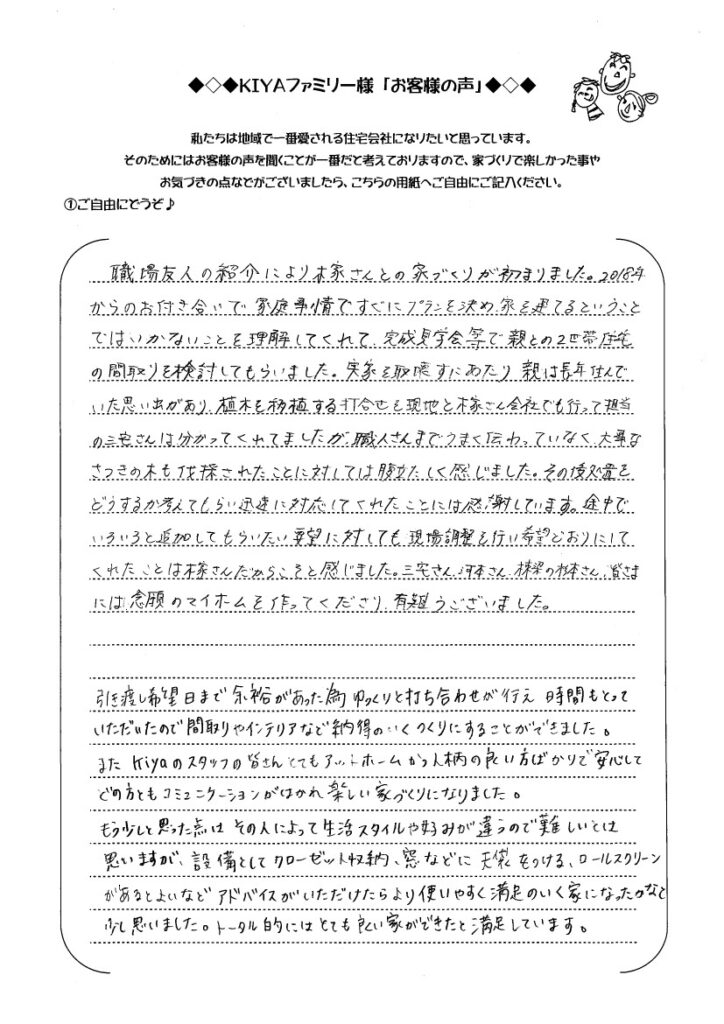 ◆◇◆KIYAファミリー様「お客様の声」◆◇◆
私たちは地域で一番愛される住宅会社になりたいと思っています。
そのためにはお客様の声を聞くことが一番だと考えておりますので、家づくりで楽しかった事や
お気づきの点などがございましたら、こちらの用紙へご自由にご記入ください。
①ご自由にどうぞ♪
職場友人の紹介により木家さんとの家づくりが初まりました。2018年
からのお付き合いで、家庭事情ですぐにプランを決め、家を建てるということ
ではいかないことを理解してくれて、完成見学会等で親との2世帯住宅
の間取りを検討してもらいました。実家を取壊すにあたり、親は長年住んで
いた思い出があり、植木を移植する打合せを現地と木家さん会社でも行って担当
の三宅さんは分かってくれてましたが、職人さんまでうまく伝わっていなく、大事な
さつきの木も伐採されたことに対しては腹立たしく感じました。その後処置を
どうするか考えてもらい迅速に対応してくれたことには感謝しています。途中で
いろいろと追加してもらいたい要望に対しても現場調整を行い希望どおりにして
くれたことは木家さんだからこそと感じました。三宅さん、河本さん、棟梁の杉本さん、皆さま
には念願のマイホームを作ってくださり、有難うございました。
引き渡し希望日まで余裕があった為ゆっくりと打ち合わせが行え 時間もとって
いただいたので間取りやインテリアなど納得のいくつくりにすることができました。
また Kiyaのスタッフの皆さんとてもアットホームかつ人柄の良い方ばかりで安心して
どの方ともコミュニケーションがはかれ楽しい家づくりになりました。
もう少しと思った点は その人によって生活スタイルや好みが違うので難しいとは
思いますが、設備としてクローゼット収納、窓などに 天袋をつける、ロールスクリーン
があるとよいなど アドバイスがいただけたらより使いやすく満足のいく家になったかなと
少し思いました。トータル的にはとても良い家ができたと満足しています。